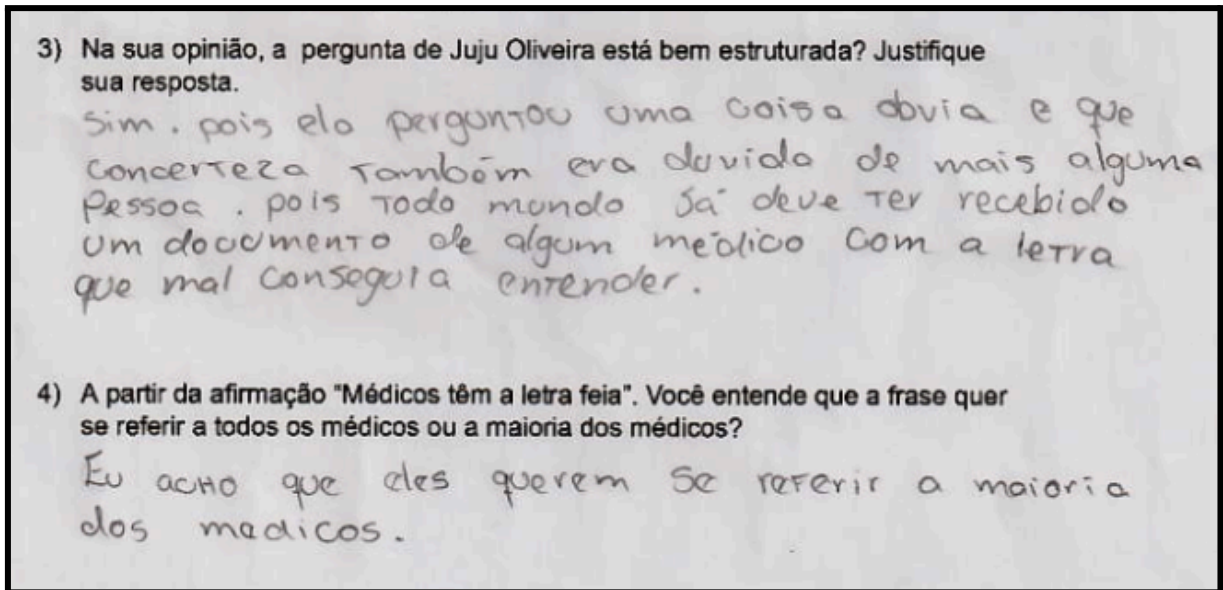 3) Na sua opinião, a pergunta de Juju Oliveira está bem estruturada? Justifique
sua resposta.
Sim. pois ela perguntou uma coisa obvia e que
concerteza também era duvida de mais alguma
Pessoa. pois todo mundo já deve ter recebido
um documento de algum médico com a letra
que mal conseguia entender.
4) A partir da afirmação "Médicos têm a letra feia". Você entende que a frase quer
se referir a todos os médicos ou a maioria dos médicos?
Eu acho que eles querem se referir a maioria
dos madicos.